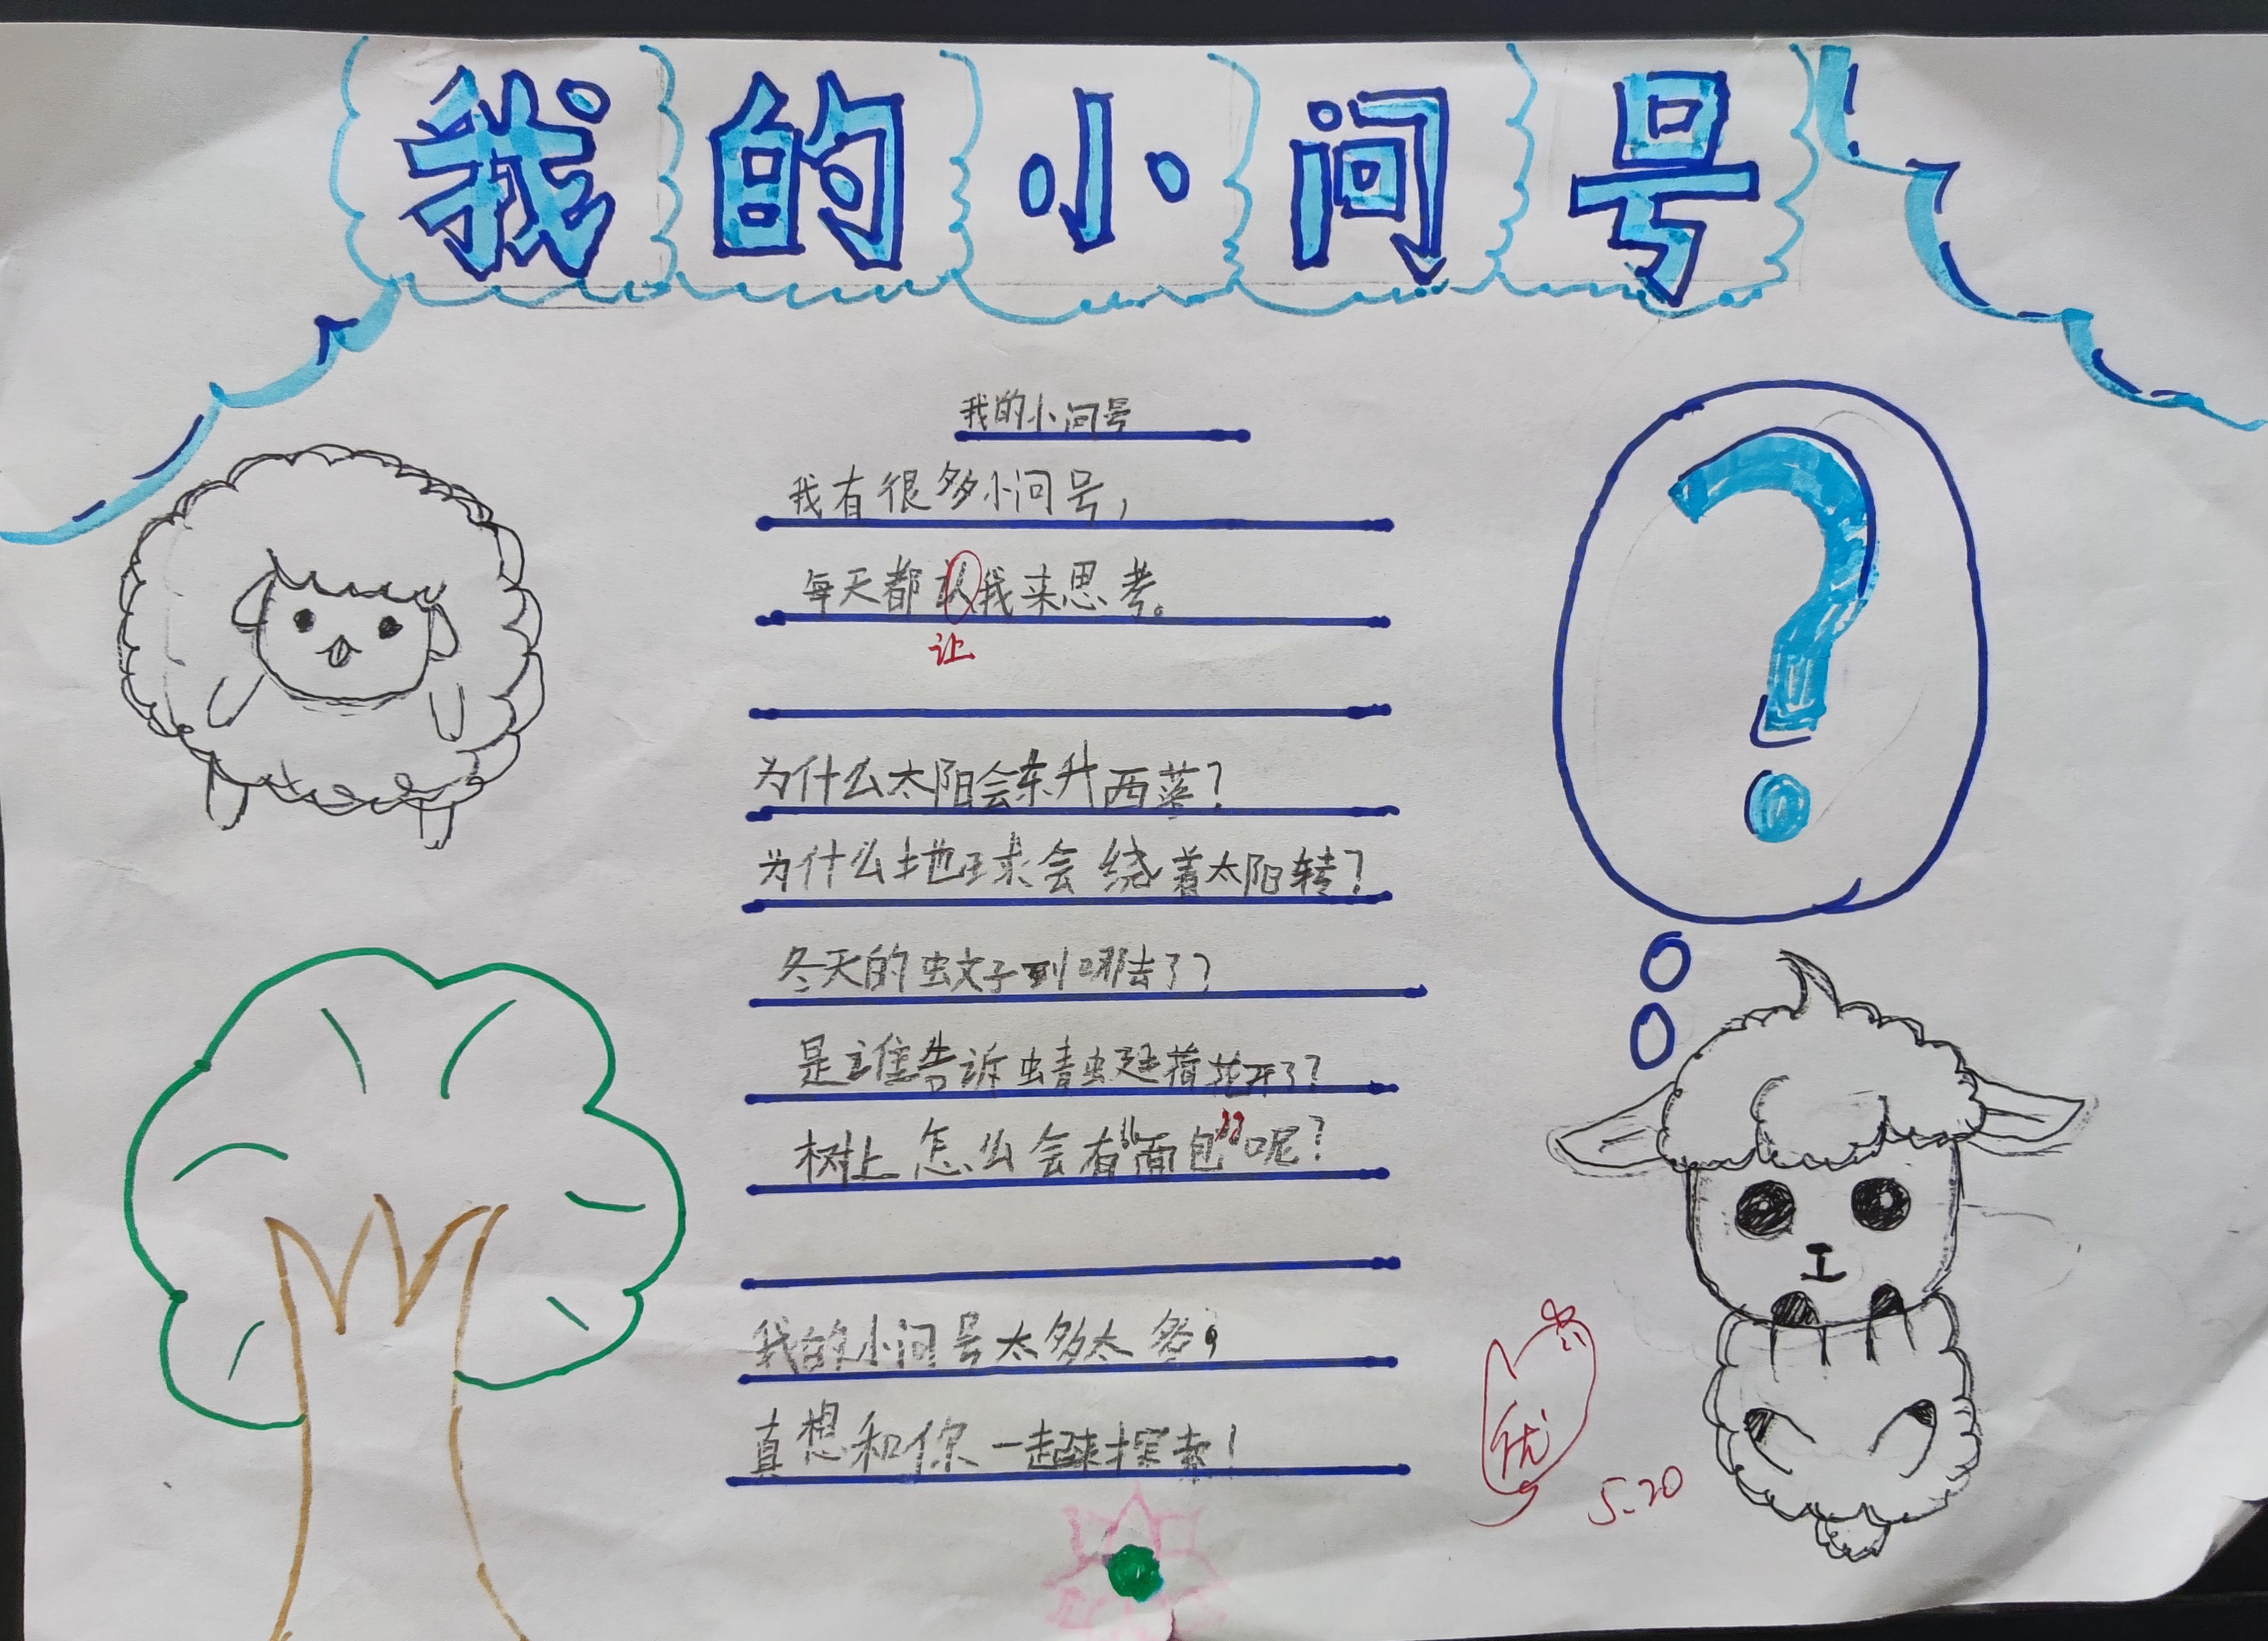 我的小问号
我的小问号
我有很多小问号，
每天都认我来思考。
让
为什么太阳会东升西落？
为什么地球会绕着太阳转？
冬天的蚊子到哪去了？
是谁告诉蜻蜓荷花开了？
树上怎么会有“面包”呢？
我的小问号太多太多，
真想和你一起来探索！
优
5.20